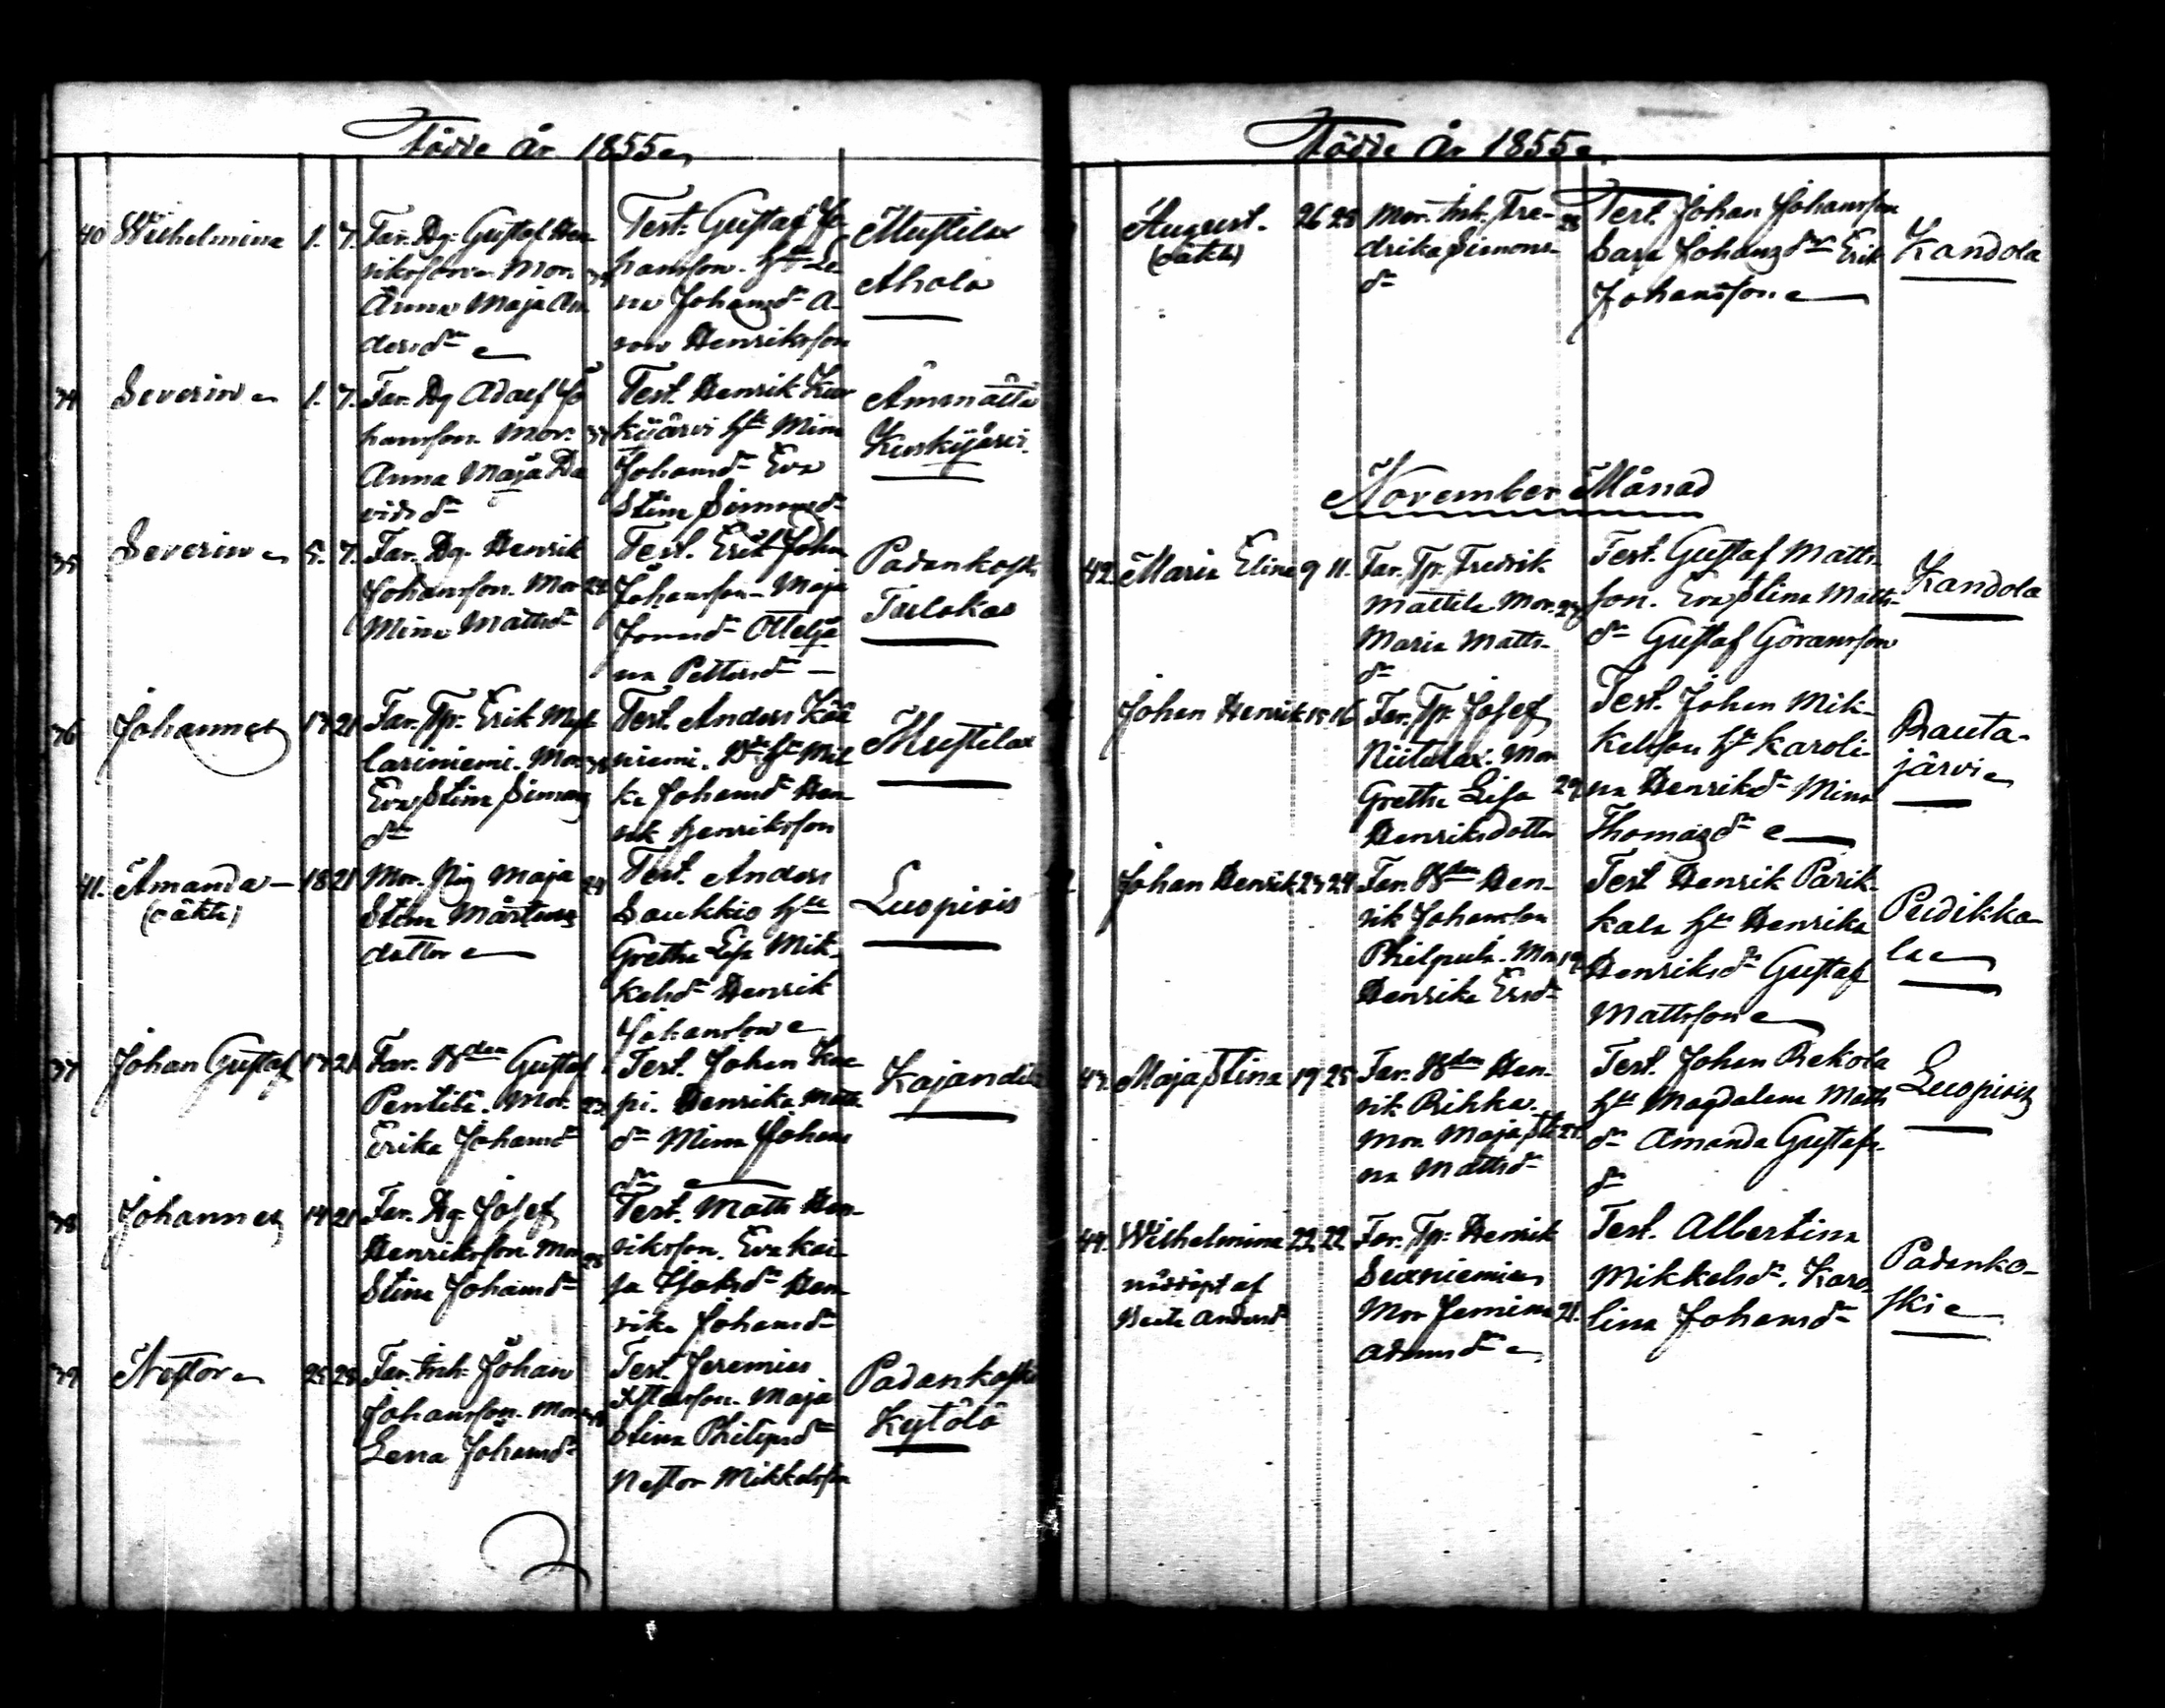 Födde År 1855
40 Wilhelmina 1. 7. Far. Dg. Gustaf Hen-
riksson Mor.
Anna Maja An
dersdr
Test. Gustaf Jo-
hansson. Hu Le
na Johansdr A-
ron Henriksson
Mustila
Ahola
34 Severin 1. 7. Far. Dg Adolf Jo
hansson. Mor.
Anna Maja Da
vidsdr
Test. Henrik Kus
kijärvi Hu Mina
Johansdr Eva
Stina Simonsdr
Ammättä
Kuskijärvi.
35 Severin 5. 7. Far. Dg. Henrik
Johansson. Mor 24
Mina Mattsdr
Test. Erik Johan
Johansson. Maja
Jonasdr Ottelja
na Pettersdr
Padankoski
36 Johannes 13 21 Far. Tp. Erik
lariniemi. Mor.
Eva Stina Simons
dr
Test. Anders
niemi. Hu
ka Johansdr Hen
rik Henriksson
Mustila
41. Amanda 18 21 Mor. Pig Maja 24
Stina Mårtens
dotter
(oäkta)
Test. Anders
Saukkio Hu
Gretha Lisa Mik-
kelsdr Henrik
Johansson
Luopiois
37 Johan Gustaf 13 21 Far. Bden Gustaf
Pentilä. Mor.
Erika Johansdr
Test. Johan
pi. Henrika Matts
dr Mina Johans
dr
Kajandila
38 Johannes 14 21 Far. Dg. Josef
Henriksson Mor
Stina Johansdr
Test. Matts Hen-
riksson. Eva Kai-
sa Isaksdr Hen
rika Johansdr
39 Nestor 25 28 Far. Inh. Johan
Johansson. Mor.
Lena Johansdr
Test. Jeremias
Maja
Stina Philipsdr
Nestor Mikkelsson
Padankoski
Kytölä
Födde År 1855
August. 26 28 Mor. Inh. Fre- 28
drika Simons-
dr
(oäkta)
Test. Johan Johansson
Sara Johansdr Erik
Johansson
Kandola
November Månad
42. Maria Elina 9 11. Far. Tp. Fredrik
Mattila Mor.
Maria Matts-
dr
Test. Gustaf Matts-
son. Eva Stina Matts-
dr Gustaf Göransson
Kandola
Johan Henrik 15 16 Far. Tp. Josef
Niitalax. Mor
Gretha Lisa 29
Henriksdotter
Test. Johan Mik-
kelsson Hu Karoli-
na Henriksdr Mina
Thomasdr
Rauta-
järvi
Johan Henrik 23 24 Far. Bden Hen-
rik Johansson
Philpula. Mor 19
Henrika Ersdr
Test Henrik Parik-
kala Hu Henrika
Henriksdr Gustaf
Mattsson
Puidikka-
la
43. Maja Stina 19 25 Far. Bden Hen-
rik Rihka.
Mor. Maja Sti 21.
na Mattsdr
Test. Johan Rekola
Hu Magdalena Matts
dr Amanda Gustafs-
dr
Luopiois
44. Wilhelmina 22 22 Far. Tp. Henrik
nöddöpt af
Beata Andersdr
Mor Jemima 21.
Adamsdr
Test. Albertina
Mikkelsdr. Karo
lina Johansdr
Padanko-
ski